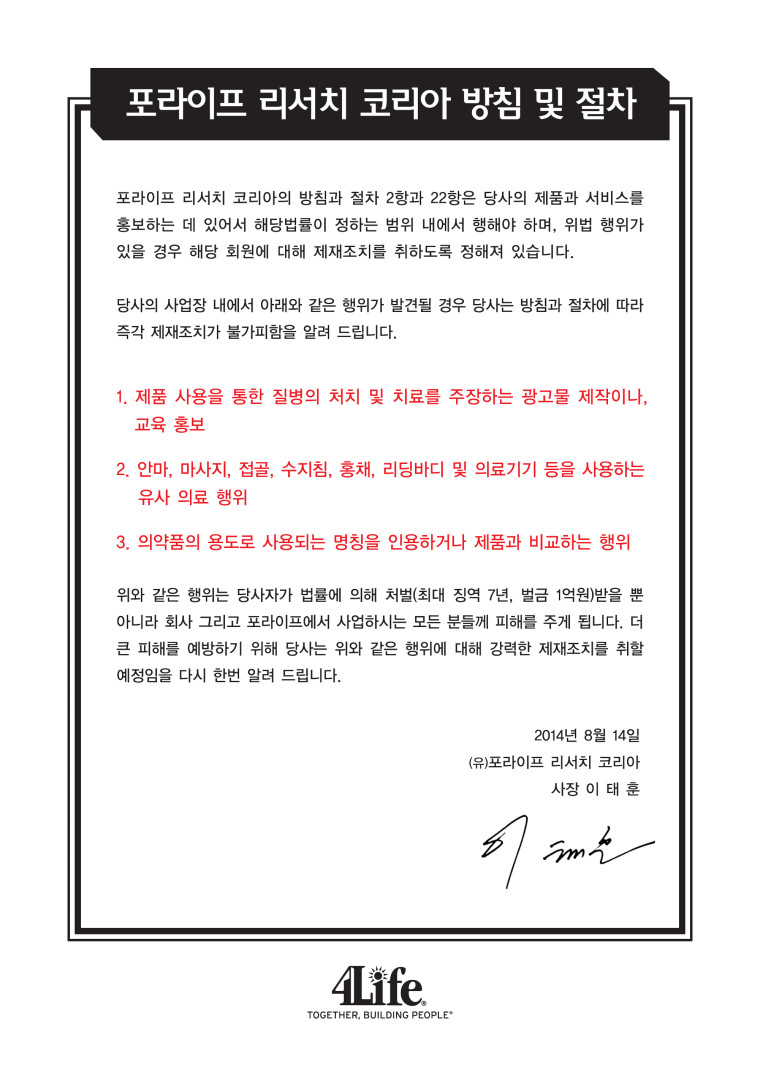 포라이프 리서치 코리아 방침 및 절차
포라이프 리서치 코리아의 방침과 절차 2항과 22항은 당사의 제품과 서비스를
홍보하는 데 있어서 해당법률이 정하는 범위 내에서 행해야 하며, 위법 행위가
있을 경우 해당 회원에 대해 제재조치를 취하도록 정해져 있습니다.
당사의 사업장 내에서 아래와 같은 행위가 발견될 경우 당사는 방침과 절차에 따라
즉각 제재조치가 불가피함을 알려 드립니다.
1. 제품 사용을 통한 질병의 처치 및 치료를 주장하는 광고물 제작이나,
교육 홍보
2. 안마, 마사지, 접골, 수지침, 홍채, 리딩바디 및 의료기기 등을 사용하는
유사 의료 행위
3. 의약품의 용도로 사용되는 명칭을 인용하거나 제품과 비교하는 행위
위와 같은 행위는 당사자가 법률에 의해 처벌(최대 징역 7년, 벌금 1억원)받을 뿐
아니라 회사 그리고 포라이프에서 사업하시는 모든 분들께 피해를 주게 됩니다. 더
큰 피해를 예방하기 위해 당사는 위와 같은 행위에 대해 강력한 제재조치를 취할
예정임을 다시 한번 알려 드립니다.
2014년 8월 14일
(유)포라이프 리서치 코리아
사장 이 태 훈
이 태훈
4Life®
TOGETHER, BUILDING PEOPLE®